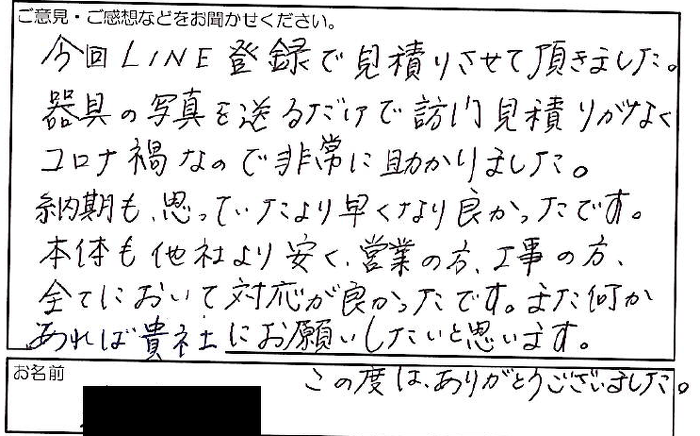 ご意見・ご感想などをお聞かせください。
今回LINE登録で見積りさせて頂きました。
器具の写真を送るだけで訪門見積りがなく
コロナ禍なので非常に助かりました。
納期も、思っていたより早くなり良かったです。
本体も他社より安く、営業の方、工事の方、
全てにおいて対応が良かったです。また何か
あれば貴社にお願いしたいと思います。
お名前
この度は、ありがとうございました。